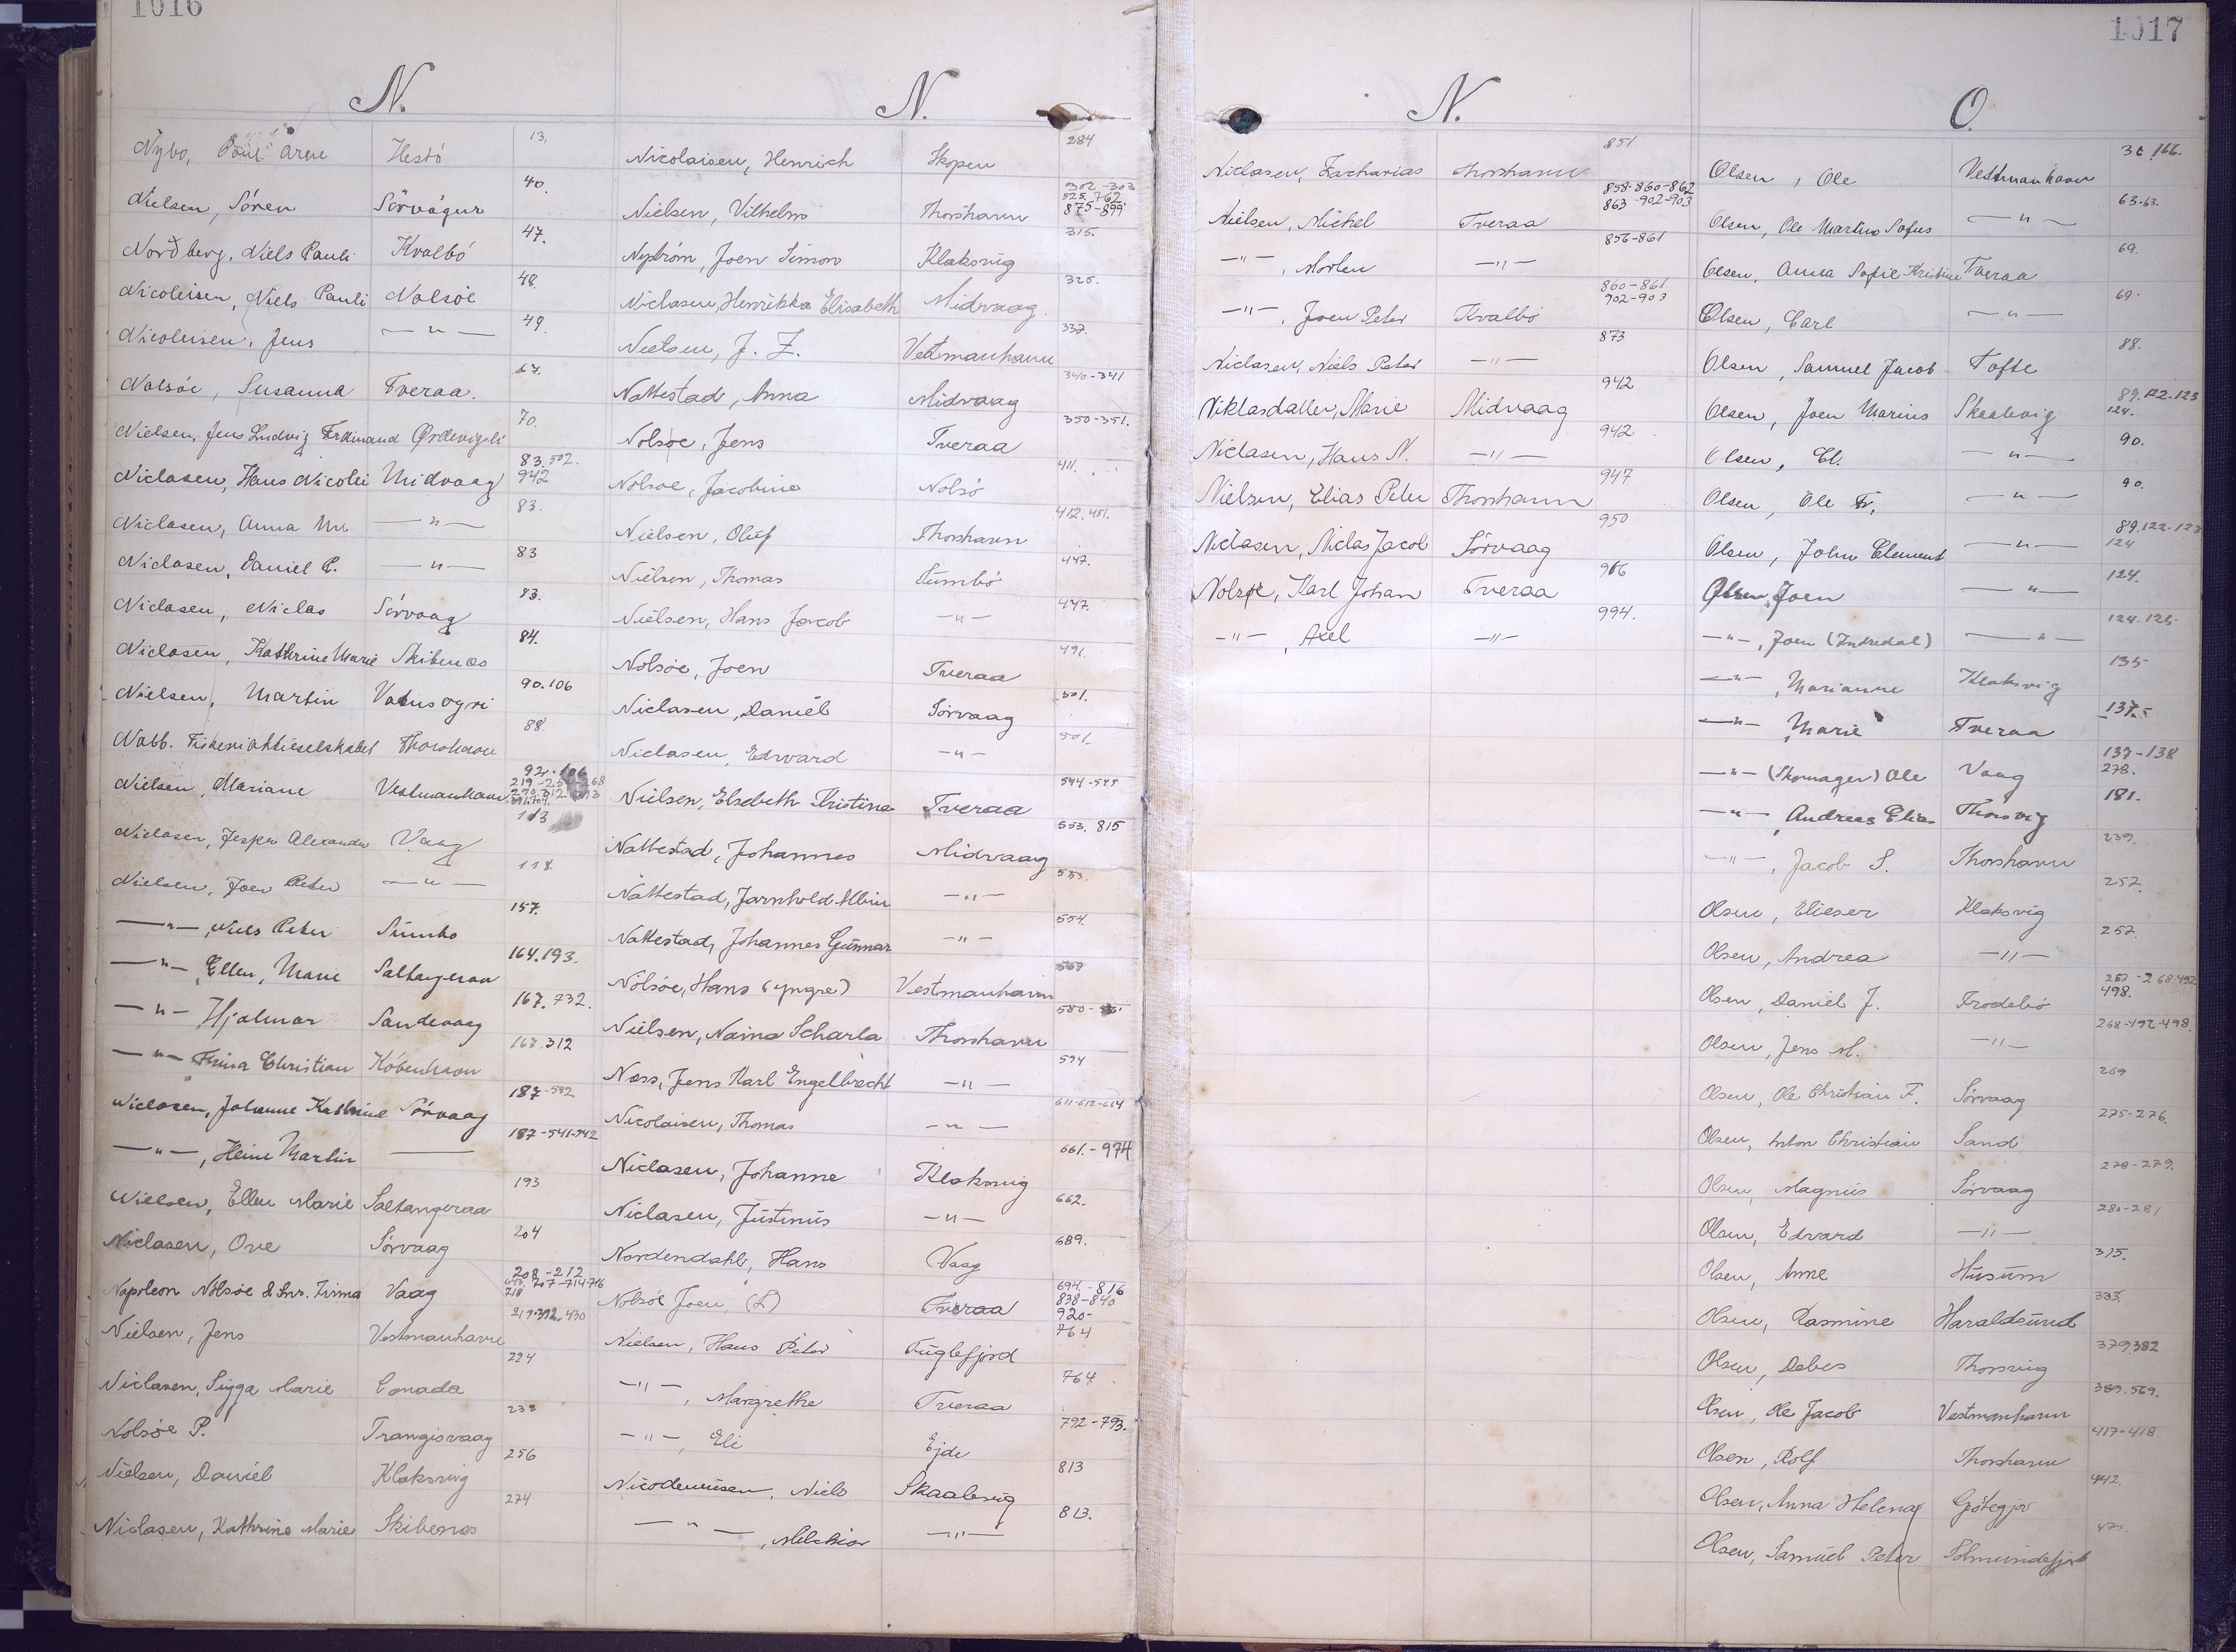 1016
N.
Nybo, Poul Arne Hestö 13.
Nielsen, Sören Sörvágur 40.
Norðberg, Niels Pauli Kvalbö 47.
Nicoleisen, Niels Pauli Nolsöe 48.
Nicoleisen, Jens —"— 49.
Nolsöe, Susanna Tveraa. 67.
Nielsen, Jens Ludvig Ferdinand 70.
Niclasen, Hans Nicolei Midvaag 83. 502. 942
Niclasen, Anna —"— 83.
Niclasen, Daniel P. —"— 83
Niclasen, Niclas Sörvaag 83.
Niclasen, Kathrine Marie Skibenæs 84.
Nielsen, Martin 90.106
Nabb. Fiskeriaktieselskabet Thorshavn 88.
Nielsen, Mariane Vestmanhavn
Niclasen, Jesper Alexander Vaag 113
Nielsen, Joen Peter —"— 118.
—"—, Niels Peter Sumbo 157.
—"— Ellen, Marie 164.193.
—"— Hjalmar Sandevaag 167. 732.
—"— Christian Köbenhavn 167.312
Niclasen, Johanne Kathrine Sörvaag 187-592
—"—, Heini Martin —— 187-541-942
Nielsen, Ellen Marie Saltangeraa 193
Niclasen, Ove Sörvaag 204
Napoleon Nolsöe & Snr. Firma Vaag 208-212
Nielsen, Jens Vestmanhavn 219.392.430
Niclasen, Sigga Marie Canada 224
Nolsöe P. Trangisvaag 232
Nielsen, Daniel Klaksvig 256
Niclasen, Kathrine Marie Skibenæs 274
N.
Nicolaisen, Henrich Skopen 284
Nielsen, Vilhelm Thorshavn 302-303 525. 762 875-899
Nyström, Joen Simon Klaksvig 315.
Niclasen, Henrikka Elisabeth Midvaag. 326.
Nielsen, J. Z. Vestmanhavn 337.
Nattestad, Anna Midvaag 340-341
Nolsøe, Jens Tveraa 350-351.
Nolsoe, Jacobine Nolsö 411.
Nielsen, Oluf Thorshavn 412.451.
Nielsen, Thomas Sumbö 447.
Nielsen, Hans Jacob —"— 447.
Nolsöe, Joen Tveraa 491.
Niclasen, Daniel Sörvaag 501.
Niclasen, Edvard —"— 501.
Nielsen, Elsebeth Kristine Tveraa 544-545
Nattestad, Johannes Midvaag 553. 815
Nattestad, Jarnhold Albin —"— 553.
Nattestad, Johannes Gunnar —"— 554.
Nolsöe, Hans (yngre) Vestmanhavn 567
Nielsen, Naina Scharla Thorshavn
Næss, Jens Karl Engelbrecht —"— 594
Nicolaisen, Thomas —"— 611-612-614
Niclasen, Johanne Klaksvig 661.-974
Niclasen, Justinus —"— 662.
Nordendahl, Hans Vaag 689.
Nolsöe Joen, Tveraa 694.-816 838-840 920-
Nielsen, Hans Peter Fuglefjord 764
—"—, Margrethe Tveraa 764.
—"—, Eli Ejde 792-793.
Nicodemusen, Niels Skaalevig 813
—"—, Melchior —"— 813.
N.
Niclasen, Zacharias Thorshavn 851
Nielsen, Michel Tveraa 858-860-862 863-902-903
—"—, Morten —"— 856-861
—"—, Joen Peter Kvalbö 860-861 902-903
Niclasen, Niels Peter —"— 873
Niklasdatter, Marie Midvaag 942
Niclasen, Hans N. —"— 942
Nielsen, Elias Peter Thorshavn 947
Niclasen, Niclas Jacob Sörvaag 950
Nolsøe, Karl Johan Tveraa 966
—"—, Axel —"— 994.
1017
O.
Olsen, Ole Vestmanhavn 36.166.
Olsen, Ole Martius Sofus —"— 63-63.
Olsen, Anna Sofie Kristine Tveraa 69.
Olsen, Carl —"— 69.
Olsen, Samuel Jacob Tofte 88.
Olsen, Joen Marius Skaalevig 89.122.123 124.
Olsen, Cl. —"— 90.
Olsen, Ole Fr. —"— 90.
Olsen, John Clement —"— 89.122-123 124
Olsen, Joen —"— 124.
—"—, Joen (Indredal) —"— 124.125.
—"—, Marianne Klaksvig 135
—"—, Marie Tveraa 137.
—"— (Skomager) Ole Vaag 137-138 278.
—"—, Andreas Elias Thorsvig 181.
—"—, Jacob S. Thorshavn 239.
Olsen, Elieser Klaksvig 257.
Olsen, Andrea —"— 257.
Olsen, Daniel J. Frodebö 267-268-492 498.
Olsen, Jens M. —"— 268-492-498.
Olsen, Ole Christian F. Sörvaag 269
Olsen, Anton Christian Sand 275-276.
Olsen, Magnus Sörvaag 278-279.
Olsen, Edvard —"— 280-281
Olsen, Anne Husum 315.
Olsen, Rasmine Haraldsund 333.
Olsen, Debes Thorsvig 379.382
Olsen, Ole Jacob Vestmanhavn 389.569.
Olsen, Rolf Thorshavn 417-418.
Olsen, Anna Helena Götegjov 442.
Olsen, Samuel Peter Solmundefjord